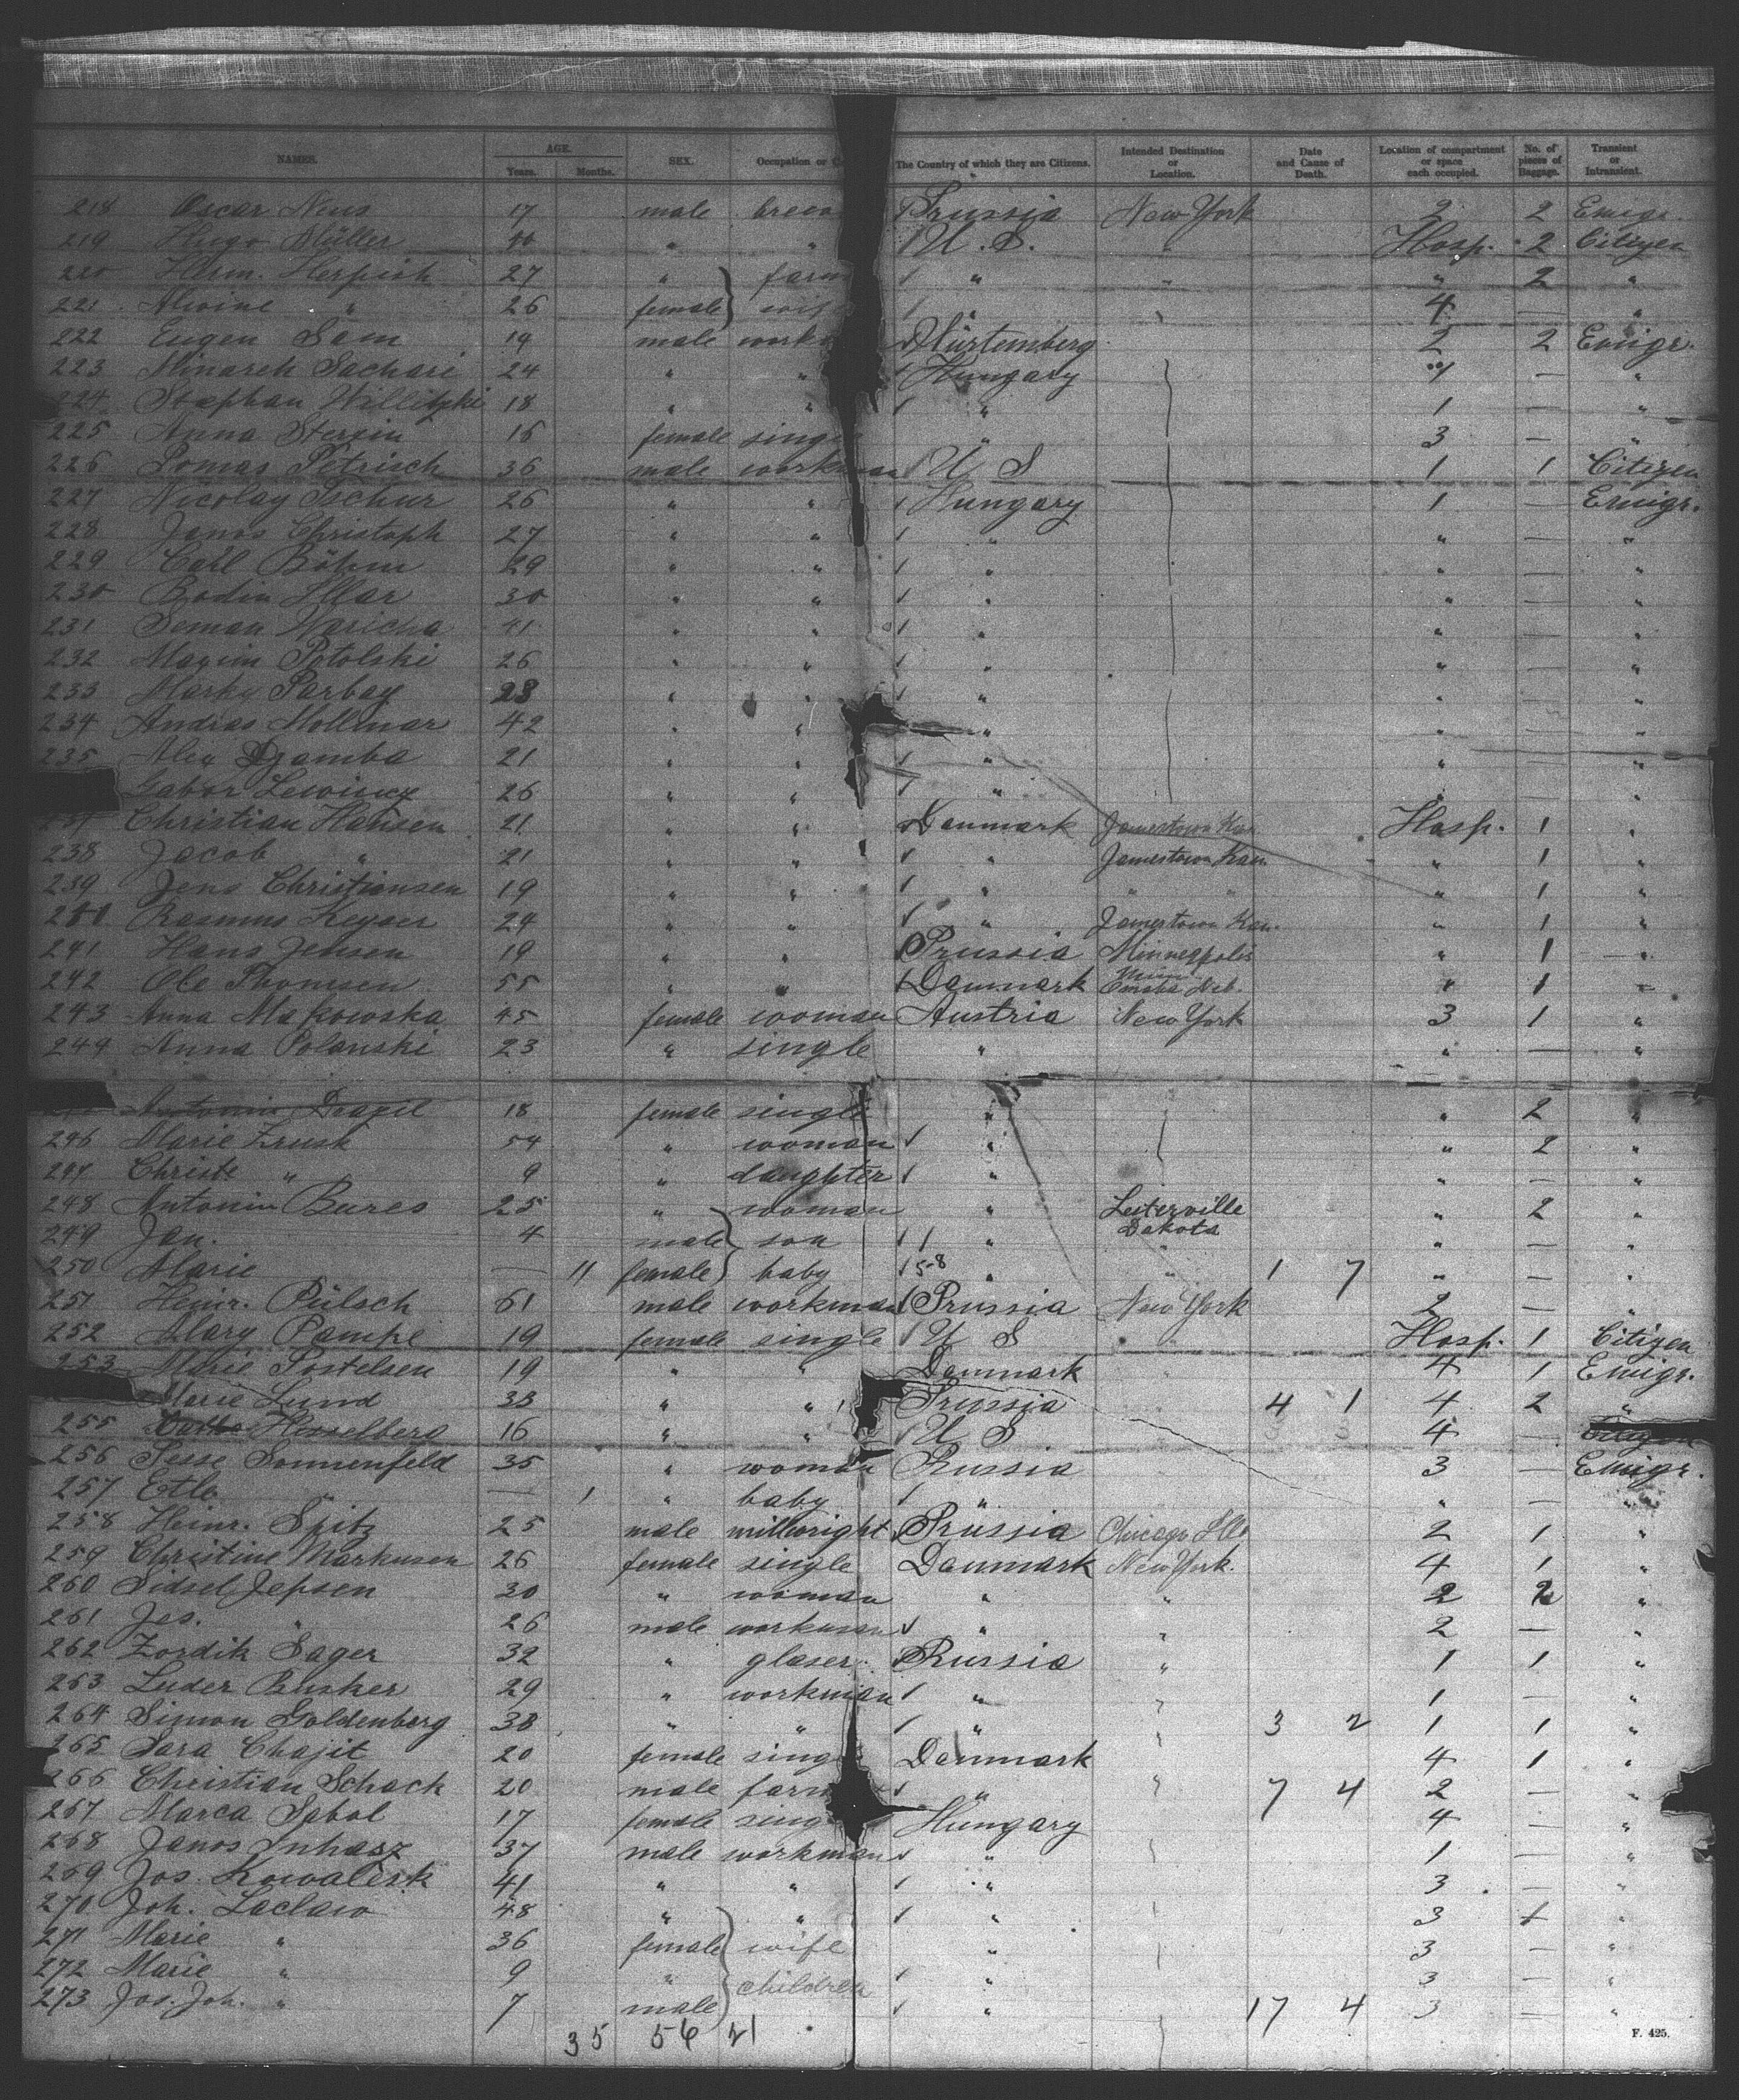 NAMES. AGE. Years. Months. SEX. Occupation or The Country of which they are Citizens. Intended Destination or Location. Date and Cause of Death. Location of compartment or space each occupied. No. of pieces of Baggage. Transient or Intransient.
218 Oscar Neus 17 male Prussia New York 2 2 Emigr.
219 Hugo Müller " " U. S. " Hosp. 2 Citizen
220 Herm. Herpich 27 " farm " " " 2 "
221 Alwine " 26 female wif " 4 — "
222 Eugen Sam 19 male work Würtemberg 2 2 Emigr.
223 Minarch Sachari 24 " " Hungary 1 — "
224 Stephan 18 " " " 1 — "
225 Anna 16 female sing " 3 — "
226 Petrisch 36 male workman U S 1 1 Citizen
227 Nicolay Tschur 26 " " Hungary 1 — Emigr.
228 Janos Christoph 27 " " " " — "
229 Carl Böhm 29 " " " " — "
230 Bodin Illar 30 " " " " — "
231 Seman Waricha 41 " " " " — "
232 Maxim Potolski 26 " " " " — "
233 Marky Parbay 23 " " " " — "
234 Andras Mollinar 42 " " " " — "
235 Alex Dzamba 21 " " " " — "
Gabor Lewincz 26 " " " " — "
237 Christian Hansen 21 " " Danmark Jamestown Kan. Hosp. 1 "
238 Jacob " 21 " " " Jamestown Kan. " 1 "
239 Jens Christiansen 19 " " " " " " 1 "
Rasmus Keyser 24 " " " Jamestown Kan. " 1 "
241 Hans Jensen 19 " " Prussia Minneapolis Minn. " 1 "
242 Ole Thomsen 55 " " Danmark Omaha Neb. " 1 "
243 Anna Makowska 45 female woman Austria New York 3 1 "
244 Anna Polanski 23 " single " " — "
18 female single " " 2 "
246 Marie Zrusk 54 " woman " " 2 "
247 Christe " 9 " daughter " " — "
248 Antonin Bures 25 " woman " Lesterville Dakota " 2 "
249 Jan. 4 male son " " " — "
250 Marie — 11 female baby 58 " " 1 7 " — "
251 Heinr. Pülsch 61 male workman Prussia New York 2 — "
252 Mary Pampe 19 female single U S " Hosp. 1 Citizen
253 Marie Postelsen 19 " " Danmark " 4 1 Emigr.
Marie Lund 38 " " Prussia " 4 1 4 2 "
255 Hesselberg 16 " " U S 4 —
256 Sonnenfeld 35 " woman Russia 3 — Emigr.
257 Etlo " — 1 " baby " " — "
258 Heinr. Spitz 25 male millwright Prussia Chicago Ills 2 1 "
259 Christine Markusen 26 female single Danmark New York. 4 1 "
260 Sidsel Jepsen 30 " woman " " 2 2 "
261 Jes. " 26 male workman " " 2 — "
262 Zordik Sager 32 " glaser Russia " 1 1 "
263 Luder Busker 29 " workman " " 1 — "
264 Simon Goldenberg 38 " " " " 3 2 1 1 "
265 Sara Chajit 20 female sing Danmark " 4 1 "
266 Christian Schack 20 male farm " " 7 4 2 — "
267 Marca Sabol 17 female sing Hungary 4 — "
268 Janos Juhasz 37 male workman " 1 — "
269 Jos. Kowalesk 41 " " " 3 — "
270 Joh. Laclaw 48 " " " 3 1 "
271 Marie " 36 female wife " 3 — "
272 Marie " 9 " children " 3 — "
273 Jos. Joh. " 7 male " 17 4 3 — "
35 56 21
F. 425.